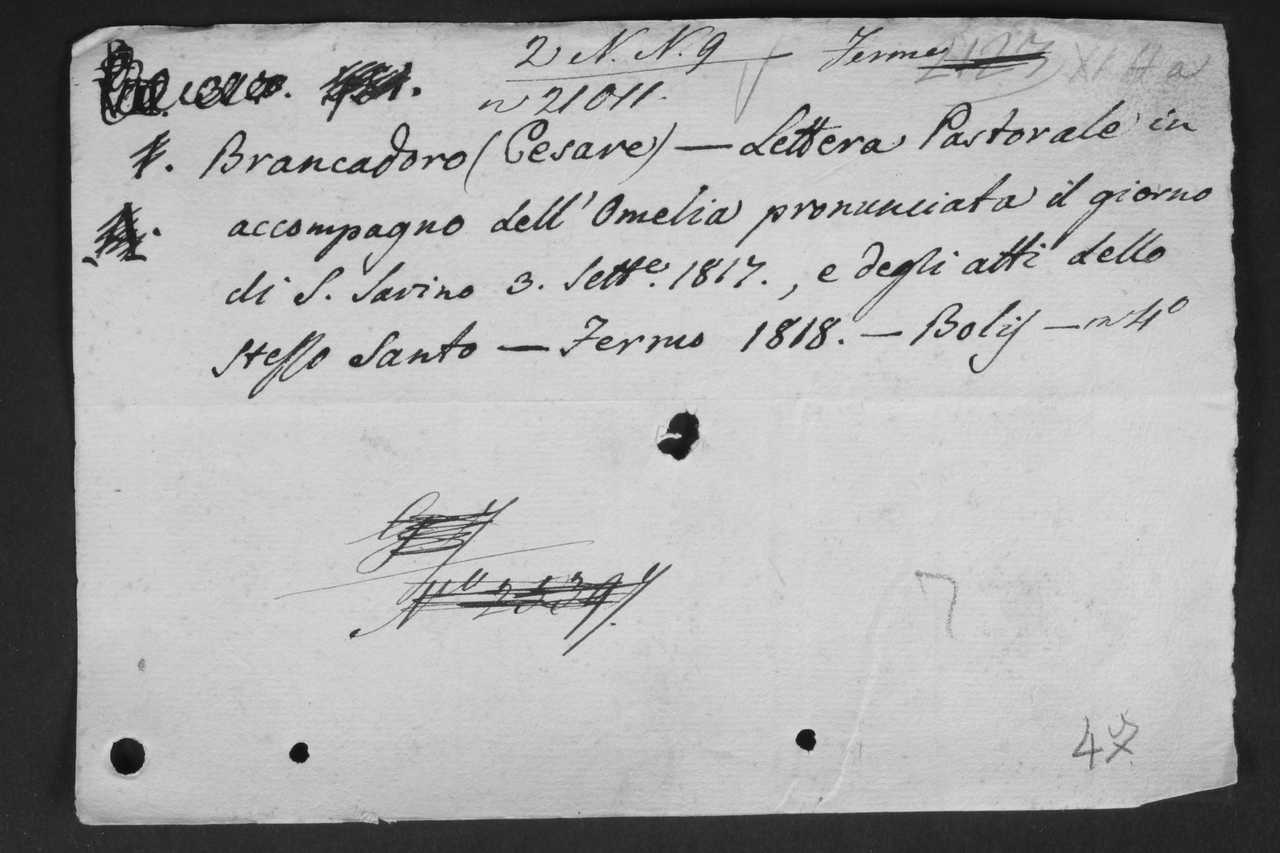 2 N. N. 9 Fermo
n 21011.
Brancadoro (Cesare) — Lettera Pastorale in
accompagno dell' Omelia pronunciata il giorno
di S. Savino 3. Sette. 1817., e degli atti dello
stesso Santo — Fermo 1818. — Bolis — in 4º
Nº 2539.
7
47